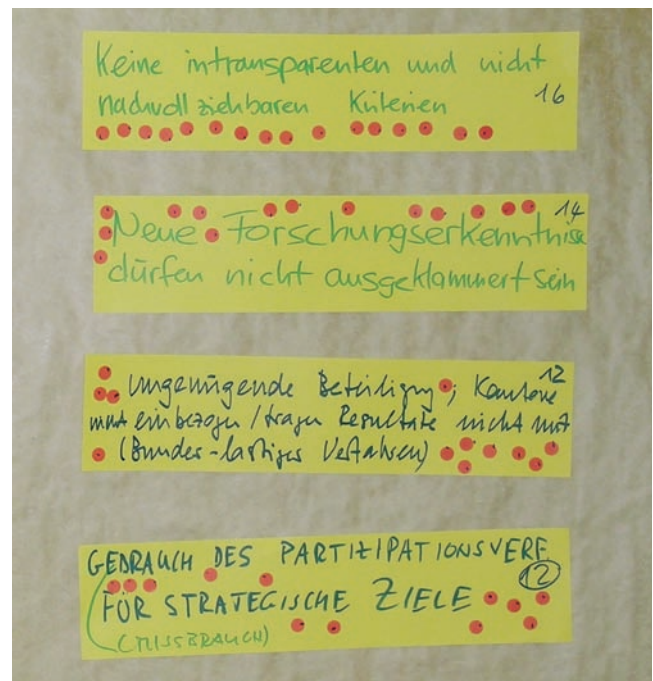 Keine intransparenten und nicht
nachvollziehbaren Kriterien 16
14
Neue Forschungserkenntnise
dürfen nicht ausgeklammert sein
12
Ungenügende Beteiligung; Kantone
einbezogen / tragen Resultate nicht mit
(Bundes-lastiges Verfahren)
GEBRAUCH DES PARTIZIPATIONSVERF
12
FÜR STRATEGISCHE ZIELE
(MISSBRAUCH)